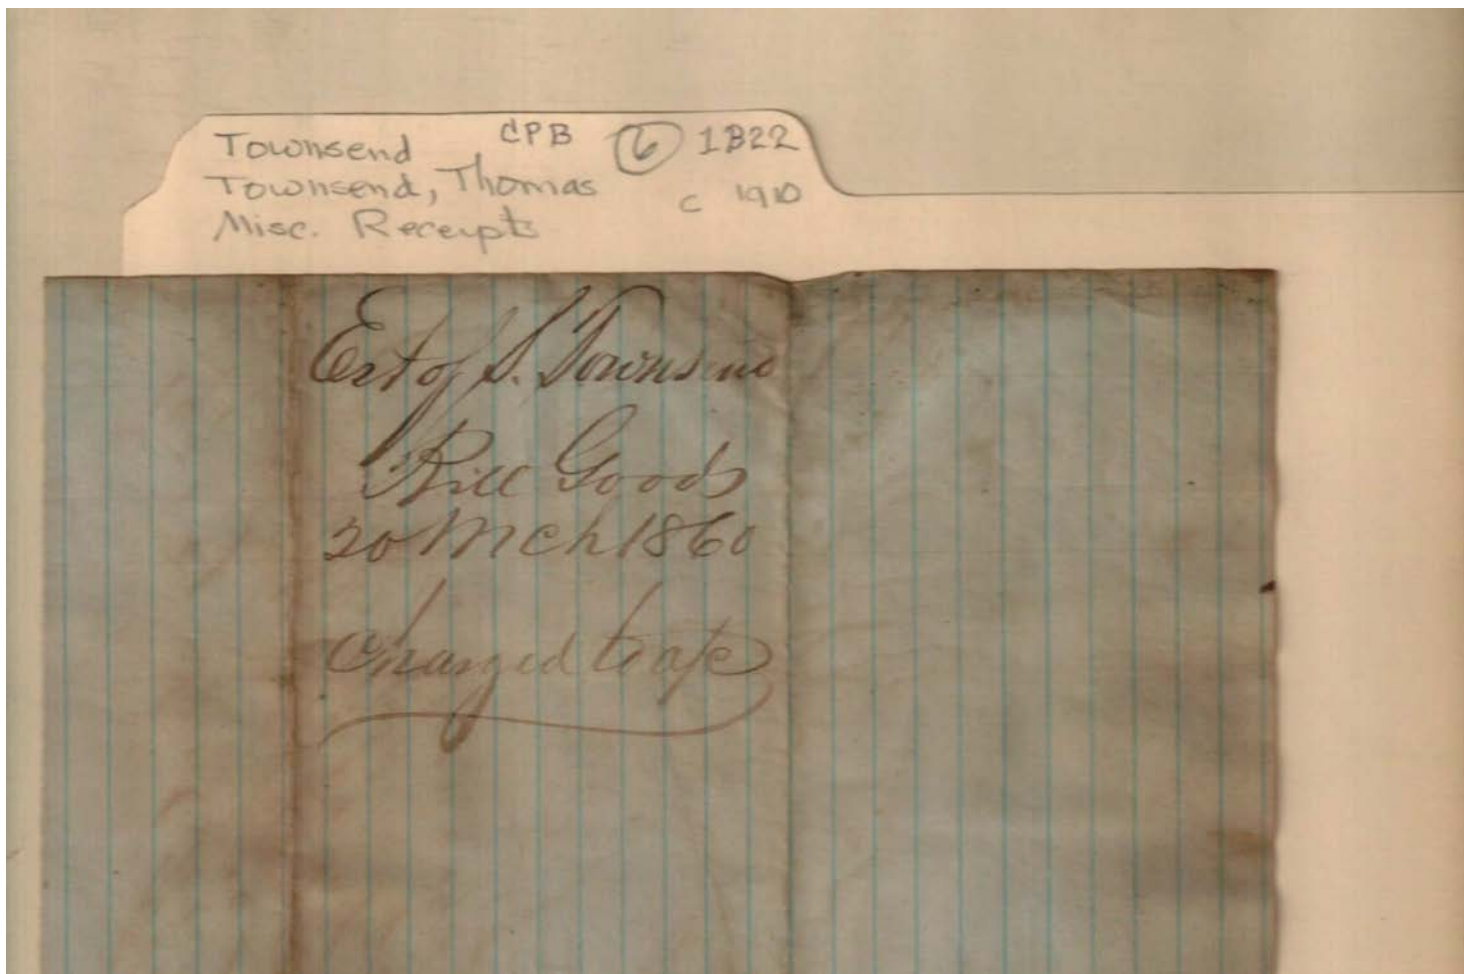 Townsend CPB 6 1B22
Townsend, Thomas c 1910
Misc. Receipts
Est of S. Townsend
Bill Goods
20 Mch 1860
Charged to a/c